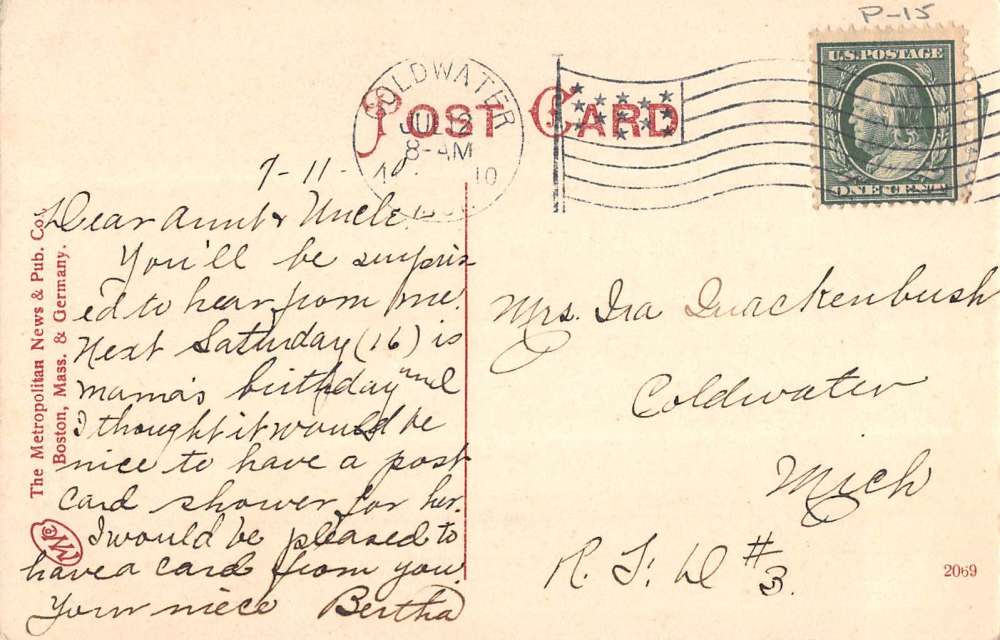 P-15
POST CARD
COLDWATER
JUL 12
8-AM
10
U.S. POSTAGE
ONE CENT
7-11-10.
Dear Aunt & Uncle.
You'll be surpris
ed to hear from me.
Next Saturday (16) is
mama's birthday and
I thought it would be
nice to have a post
card shower for her.
I would be pleased to
have a card from you.
Your niece Bertha
Mrs. Ira Quackenbush
Coldwater
Mich
R. F. D #3.
The Metropolitan News & Pub. Co.,
Boston, Mass. & Germany.
2069